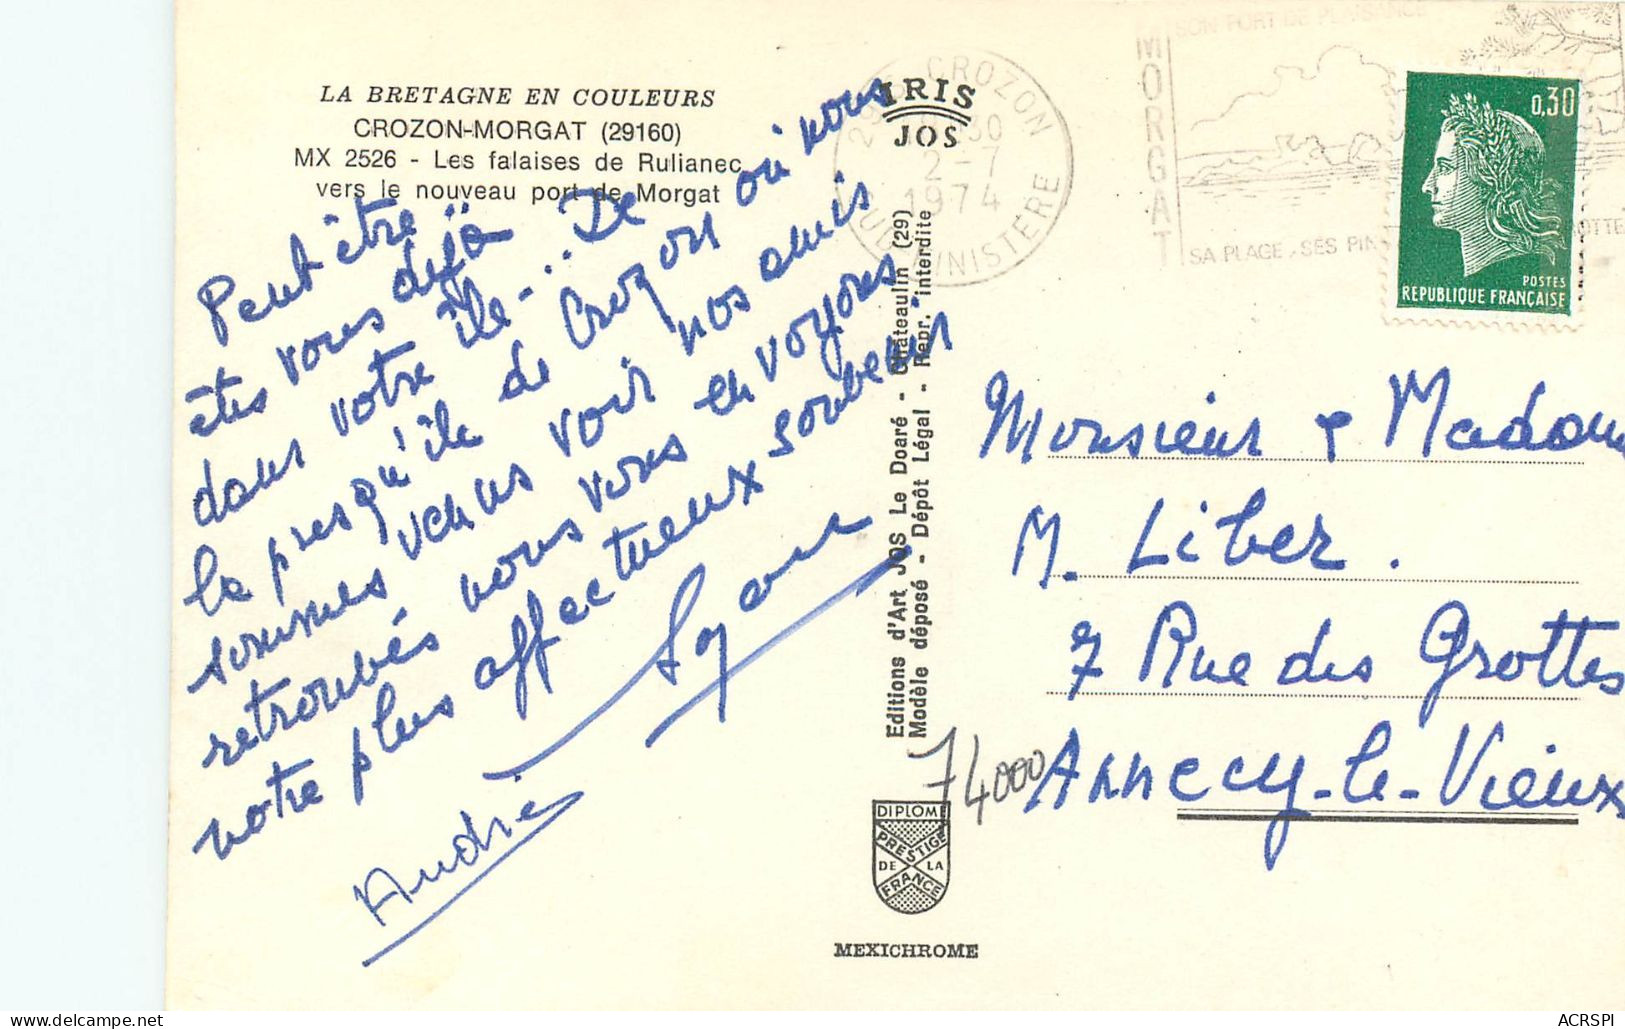 LA BRETAGNE EN COULEURS
CROZON-MORGAT (29160)
MX 2526 - Les falaises de Rulianec
vers le nouveau port de Morgat
Peut être
êtes vous déjà
dans votre île-... De
la presqu'île de Crozon où nous
sommes venus voir nos amis
retrouvés nous vous en voyons
notre plus affectueux souvenir
André
IRIS
JOS
CROZON
30
2-7
1974
SUD FINISTÈRE
MORGAT
SON PORT DE PLAISANCE
SA PLAGE, SES PIN
0,30
POSTES
REPUBLIQUE FRANÇAISE
Editions d'Art JOS Le Doaré - Châteaulin (29)
Modèle déposé - Dépôt Légal - Repr. interdite
Monsieur & Madame
M. Liber.
7 Rue des Grottes
74000 Annecy-le-Vieux
DIPLOME
PRESTIGE
DE LA
FRANCE
MEXICHROME
ACRSPI